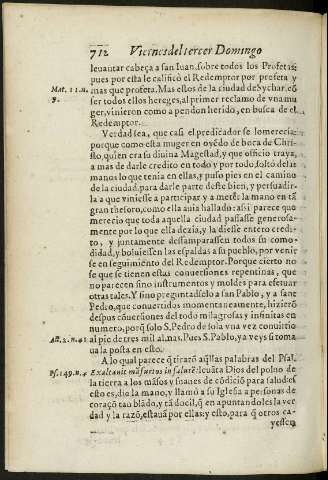 712 Viernes del tercer Domingo
leuantar cabeça a san Iuan, sobre todos los Profetas:
pues por esta le calificò el Redemptor por profeta y
Mat. 11. n. mas que profeta. Mas estos de la ciudad de Sychar, cõ
9. ser todos ellos hereges, al primer reclamo de vna mu
ger, vinieron como a pendon herido, en busca de el
Redemptor.
Verdad sea, que casi el predicador se lo merecia:
porque como esta muger en oyẽdo de boca de Chri-
sto, quien era su diuina Magestad, y que officio traya,
a mas de darle credito en todo y por todo, soltò de las
manos lo que tenia en ellas, y puso pies en el camino
de la ciudad, para darle parte deste bien, y persuadir-
la a que viniesse a participar y a meter la mano en tã
gran thesoro, como ella auia hallado: assi parece que
merecio que toda aquella ciudad passasse generosa-
mente por lo que ella dezia, y la diesse entero credi-
to, y juntamente desamparassen todos su como-
didad, y boluiessen las espaldas a su pueblo, por venir
se en seguimiẽto del Redemptor. Porque cierto no
se que se tienen estas conuersiones repentinas, que
no parecen sino instrumentos y moldes para efetuar
otras tales. Y sino preguntadselo a san Pablo, y a sane
Pedro, que conuertidos momentaneamente, hizierõ
despues cõuersiones del todo milagrosas y infinitas en
numero, porq̃ solo S. Pedro de sola vna vez conuirtio
Act. 2. n. 41 al pie de tres mil almas. Pues S. Pablo, ya veys si toma
ua la posta en esto.
A lo qual parece q̃ tirarõ aq̃llas palabras del Psal.
Ps. 149. n. 4 Exaltauit mãsuetos in salutẽ: leuãta Dios del polno de
la tierra a los mãsos y suaues de cõdiciõ para salud: es
esto es, dio la mano, y llamò a su Iglesia a personas de
coraçõ tan blãdo, y tã docil, q̃ en apuntandoles la ver
dad y la razõ, estauã por ellas: y esto, para q̃ otros ca-